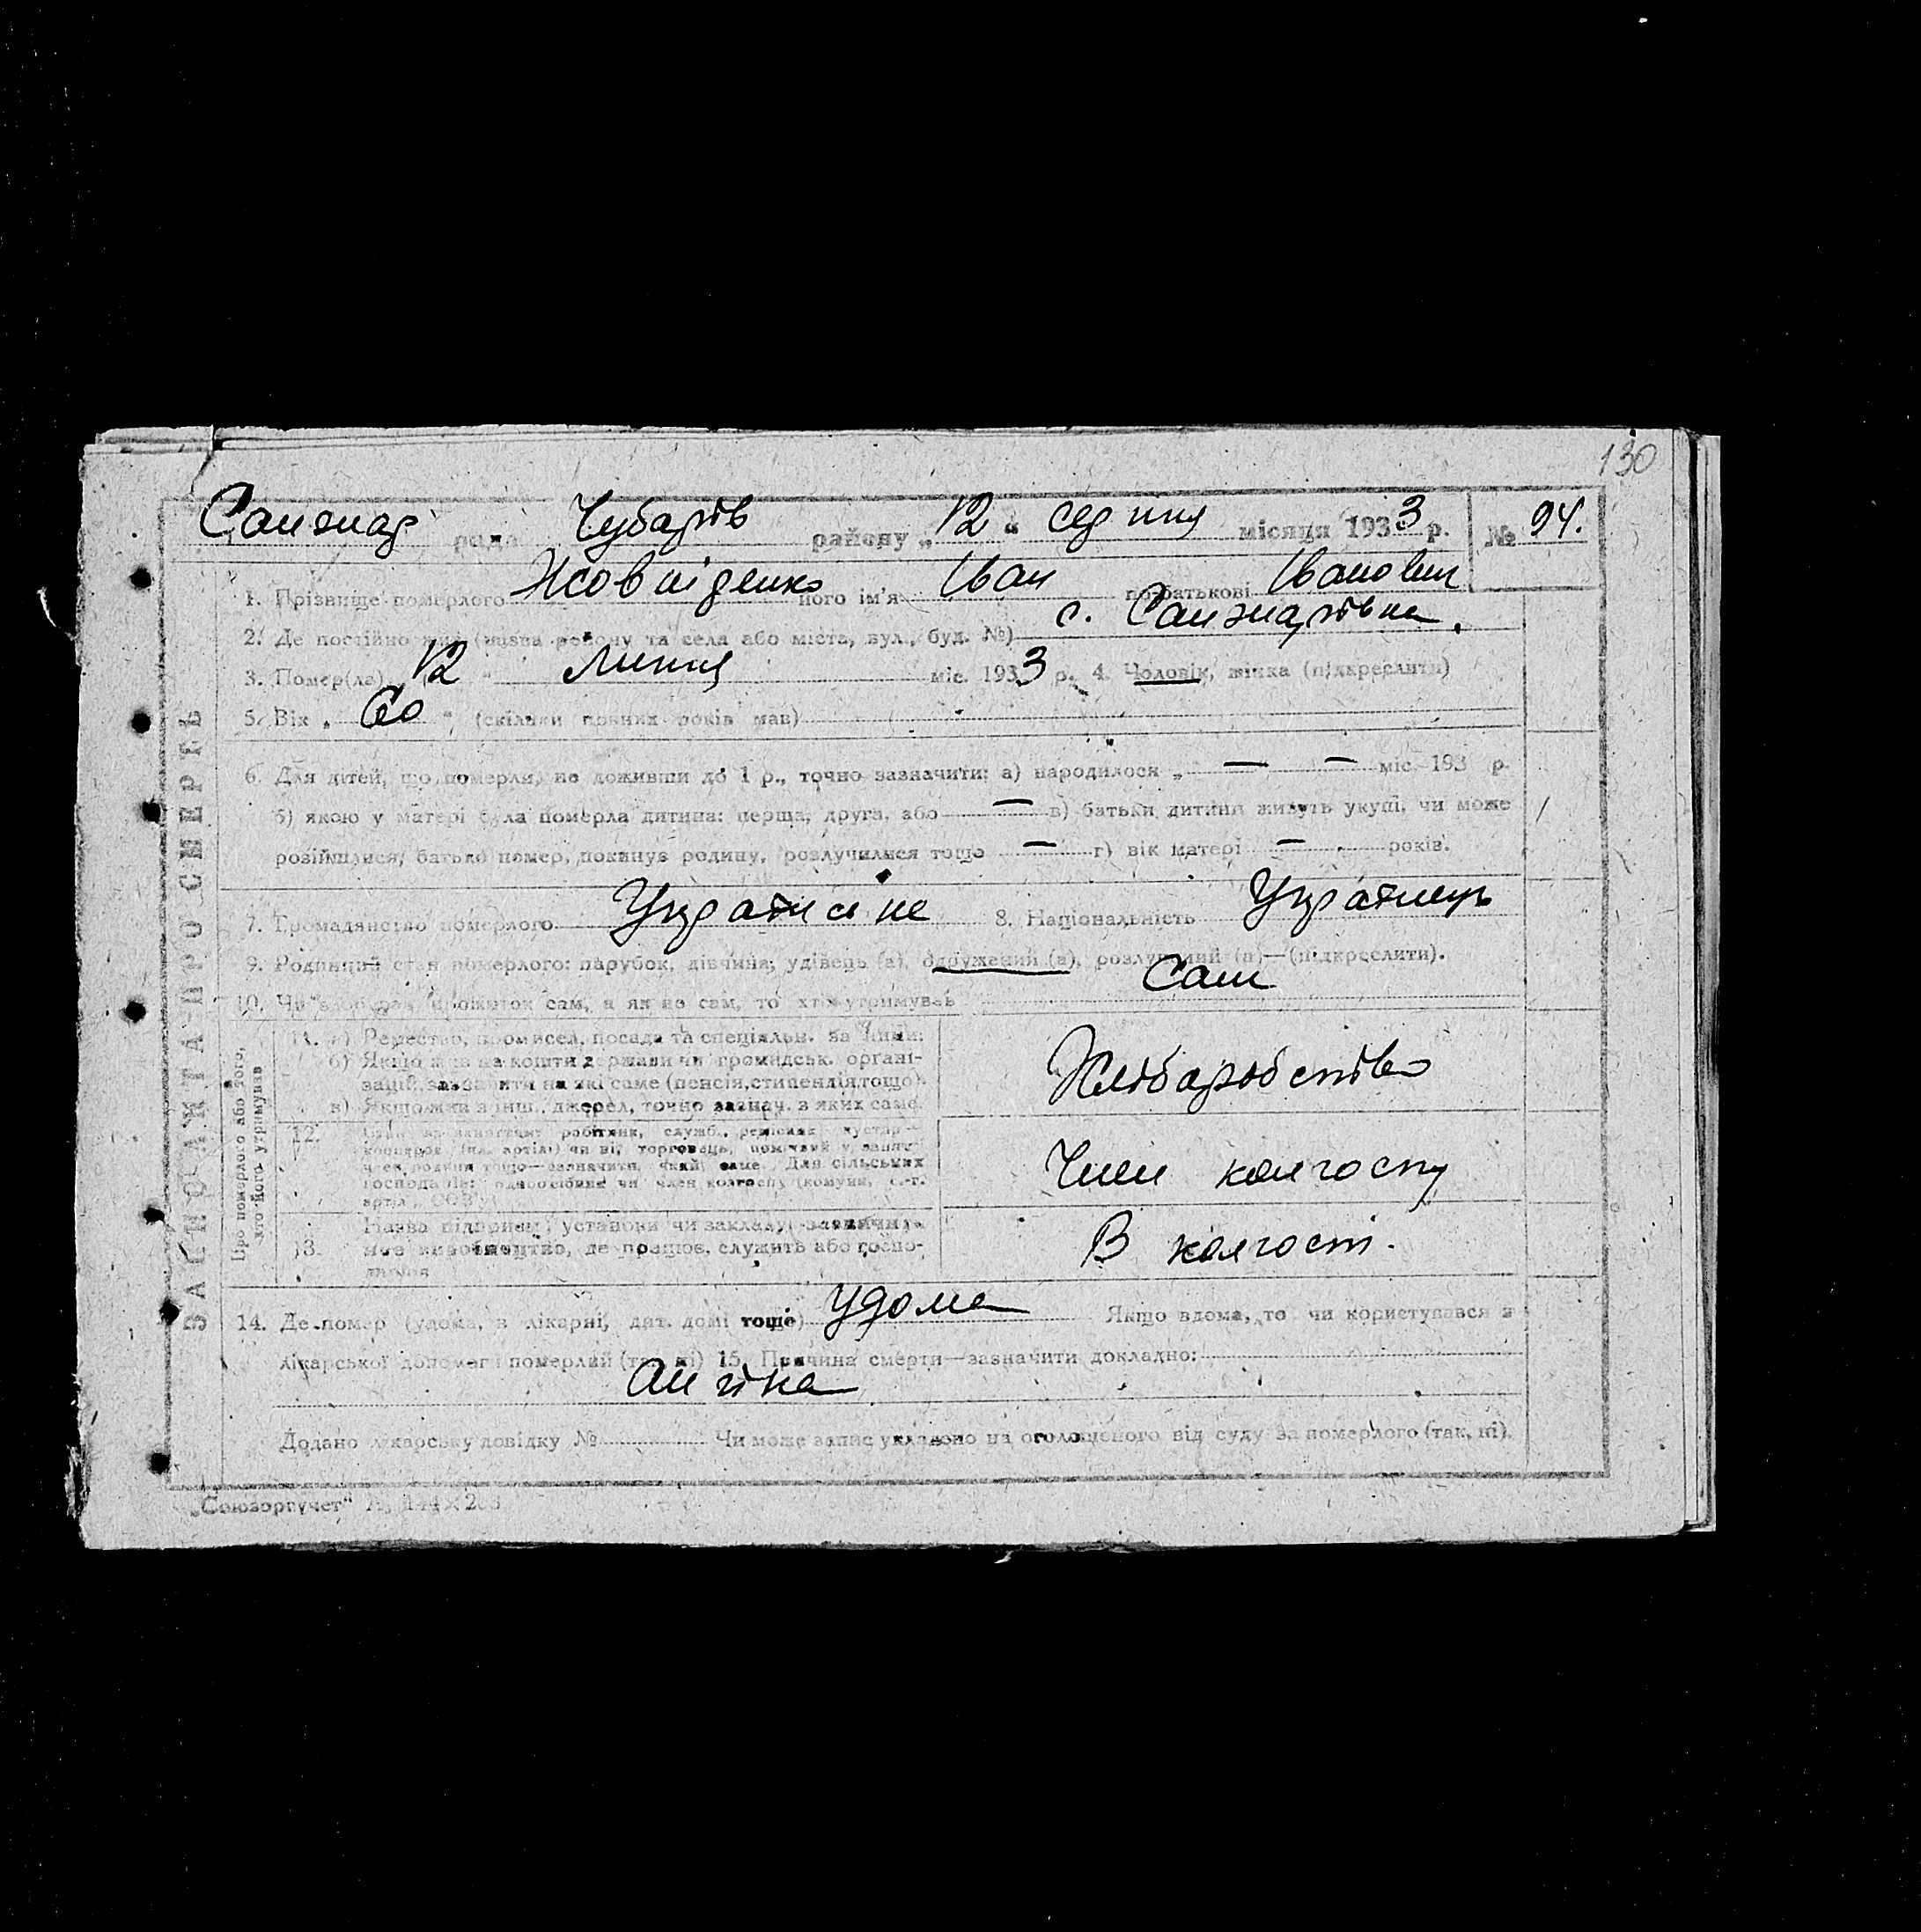 130
Санжар рада Чубарів району „12“ серпня місяця 1933 р. № 94.
1. Прізвище померлого Жовніденко його ім'я Іван по-батькові Іванович
2. Де постійно жив (назва району та села або міста, вул., буд. №) с. Санжарівка.
3. Помер(ла) „12“ липня міс. 1933 р. 4. Чоловік, жінка (підкреслити)
5. Вік „60“ (скільки повних років мав)
6. Для дітей, що померли, не доживши до 1 р., точно зазначити: а) народилося „ — — міс. 193 р.
б) якою у матері була померла дитина: перша, друга, або — в) батьки дитини живуть укупі, чи може
розійшлися, батько помер, покинув родину, розлучилися тощо — г) вік матері — років.
7. Громадянство померлого 8. Національність Українець
9. Родинний стан померлого: парубок, дівчина; удівець (а), одружений (а), розлучений (а)—(підкреслити).
10. Чи сам, а як не сам, то хто утримував Сам
ЗАПИС АКТА ПРО СМЕРТЬ
Про померлого або того, хто його утримував
11. а) Ремество, промисел, посада та спеціяльн. за ними:
б) Якщо жив на кошти держави чи громадськ. органі-
зацій, зазначити на які саме (пенсія, стипендія, тощо).
в) Якщо жив з інш. джерел, точно зазнач. з яких саме.
Хліборобство
12. робітник, служб.,
Для сільських
член колгоспу (комуни, с.-г.
Член колгоспу
13. Назва підприєм., установи чи закладу,
де працює, служить або госпо-
В колгоспі.
14. Де помер (удома, в лікарні, дит. домі тощо) удома Якщо вдома, то чи користувався з
лікарської допомоги померлий (так, ні) 15. Причина смерти—зазначити докладно:
Ангіна
Додано лікарську довідку № Чи може запис укладено на оголошеного від суду за померлого (так, ні).
„Союзоргучет“